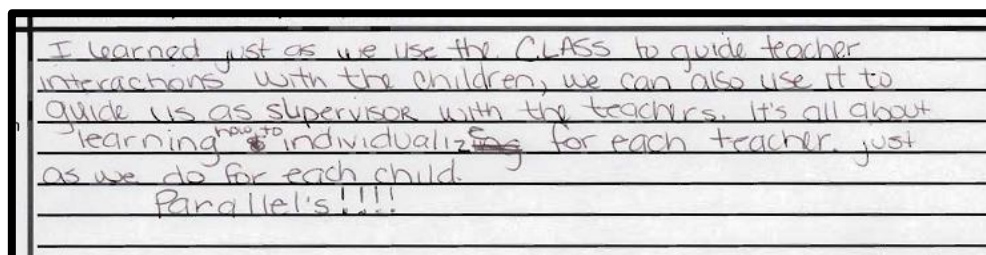 I learned just as we use the CLASS to guide teacher
interactions with the children, we can also use it to
guide us as supervisor with the teachers. It's all about
learning how to individualize for each teacher. just
as we do for each child.
Parallel's!!!!